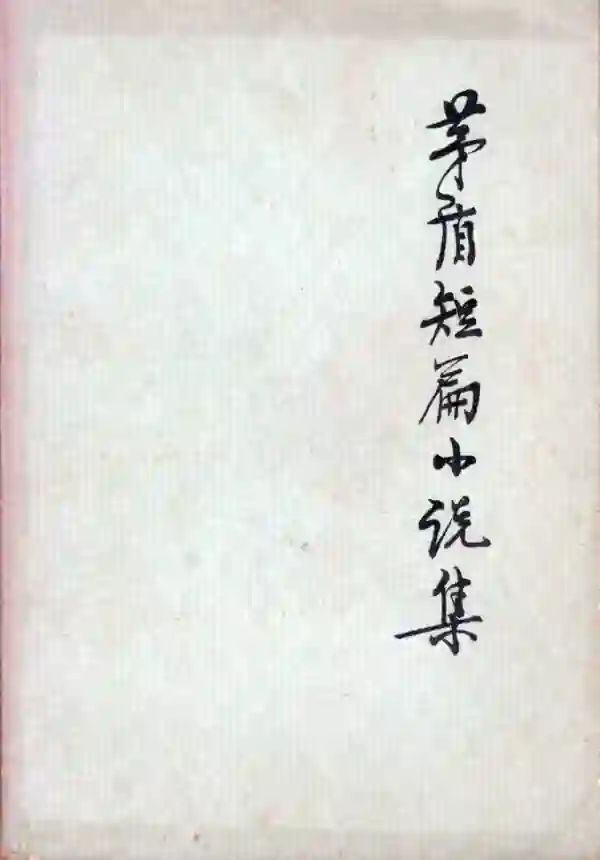 茅盾短篇小说集